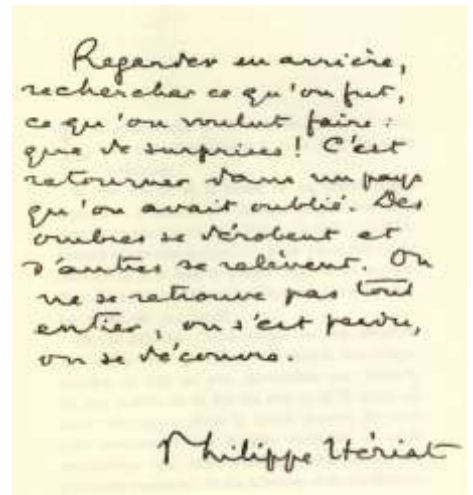 Regarder en arrière,
rechercher ce qu'on fut,
ce qu'on voulut faire :
que de surprises ! C'est
retourner dans un pays
qu'on avait oublié. Des
ombres se dérobent et
d'autres se relèvent. On
ne se retrouve pas tout
entier, on s'est perdu,
on se découvre.
Philippe Hériat